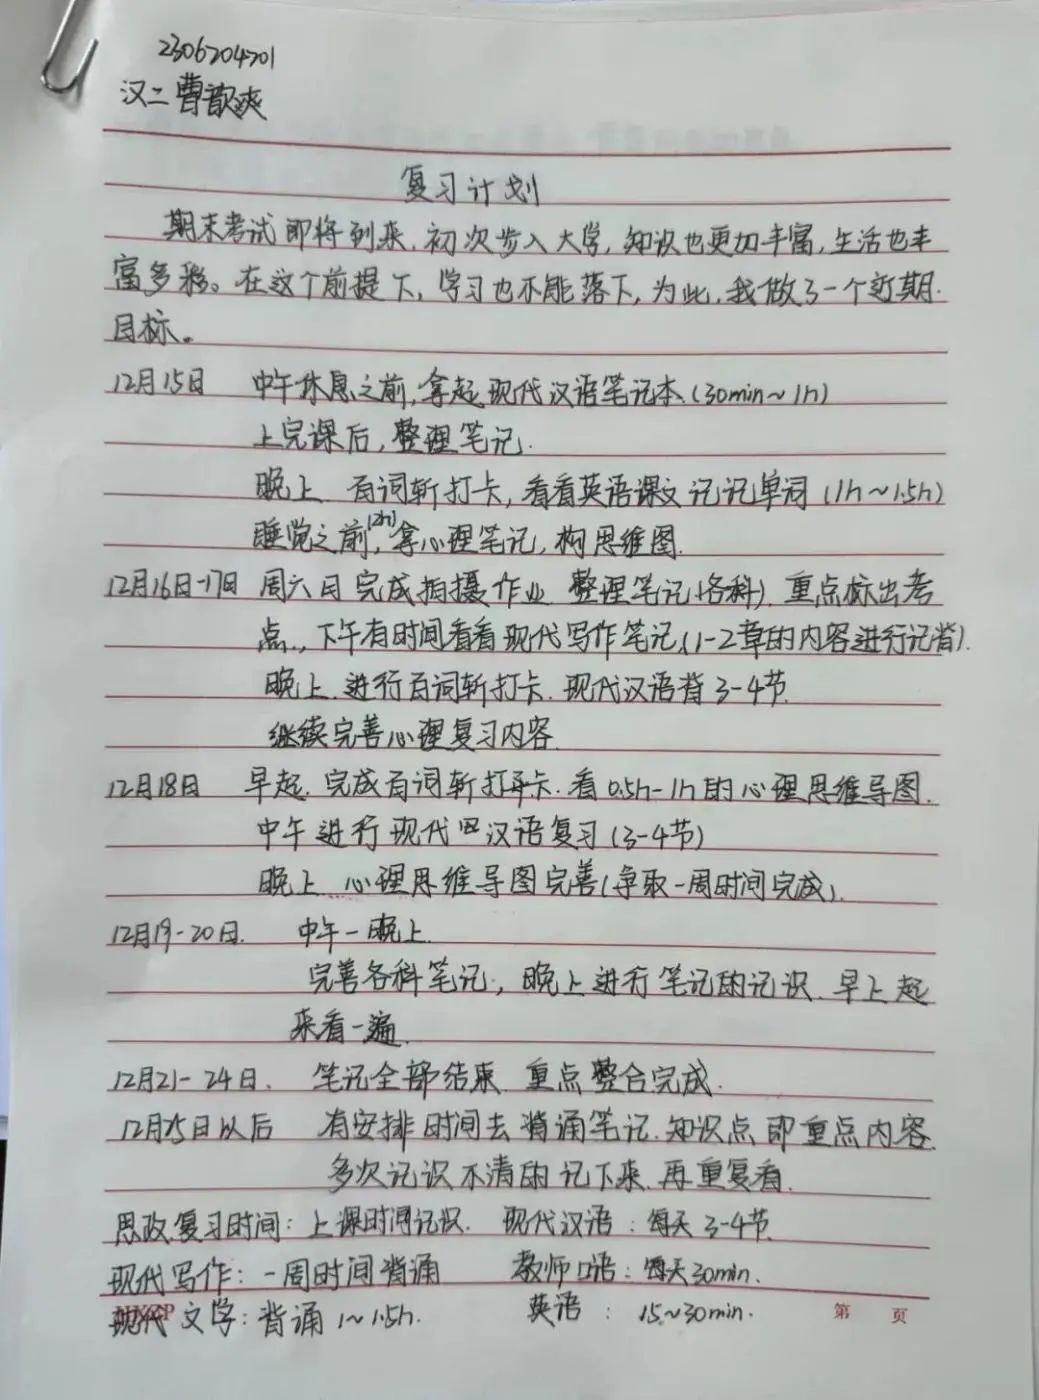 2306204701
汉二曹歆爽
复习计划
期末考试即将到来,初次步入大学,知识也更加丰富,生活也丰
富多彩。在这个前提下,学习也不能落下,为此,我做了一个近期.
目标。
12月15日 中午休息之前,拿起现代汉语笔记本.(30min~1h)
上完课后,整理笔记.
晚上 百词斩打卡,看看英语课文 记记单词 (1h~1.5h)
睡觉之前,(2h)拿心理笔记,构思维图.
12月16日-17日 周六日 完成拍摄作业 整理笔记(各科),重点标出考
点.,下午有时间看看现代写作笔记(1-2章的内容进行记背).
晚上.进行百词斩打卡.现代汉语背3-4节.
继续完善心理复习内容.
12月18日 早起.完成百词斩打卡.看0.5h-1h的心理思维导图.
中午进行现代汉语复习(3-4节)
晚上 心理思维导图完善(争取一周时间完成).
12月19-20日. 中午-晚上.
完善各科笔记.,晚上进行笔记的记识.早上起
来看一遍.
12月21-24日. 笔记全部结束.重点整合完成.
12月25日以后 有安排时间去背诵笔记.知识点即重点内容.
多次记识不清的记下来.再重复看.
思政复习时间:上课时间记识. 现代汉语:每天3-4节.
现代写作:一周时间背诵 教师口语:每天30min.
现代文学:背诵1~1.5h. 英语:15~30min.
第 页